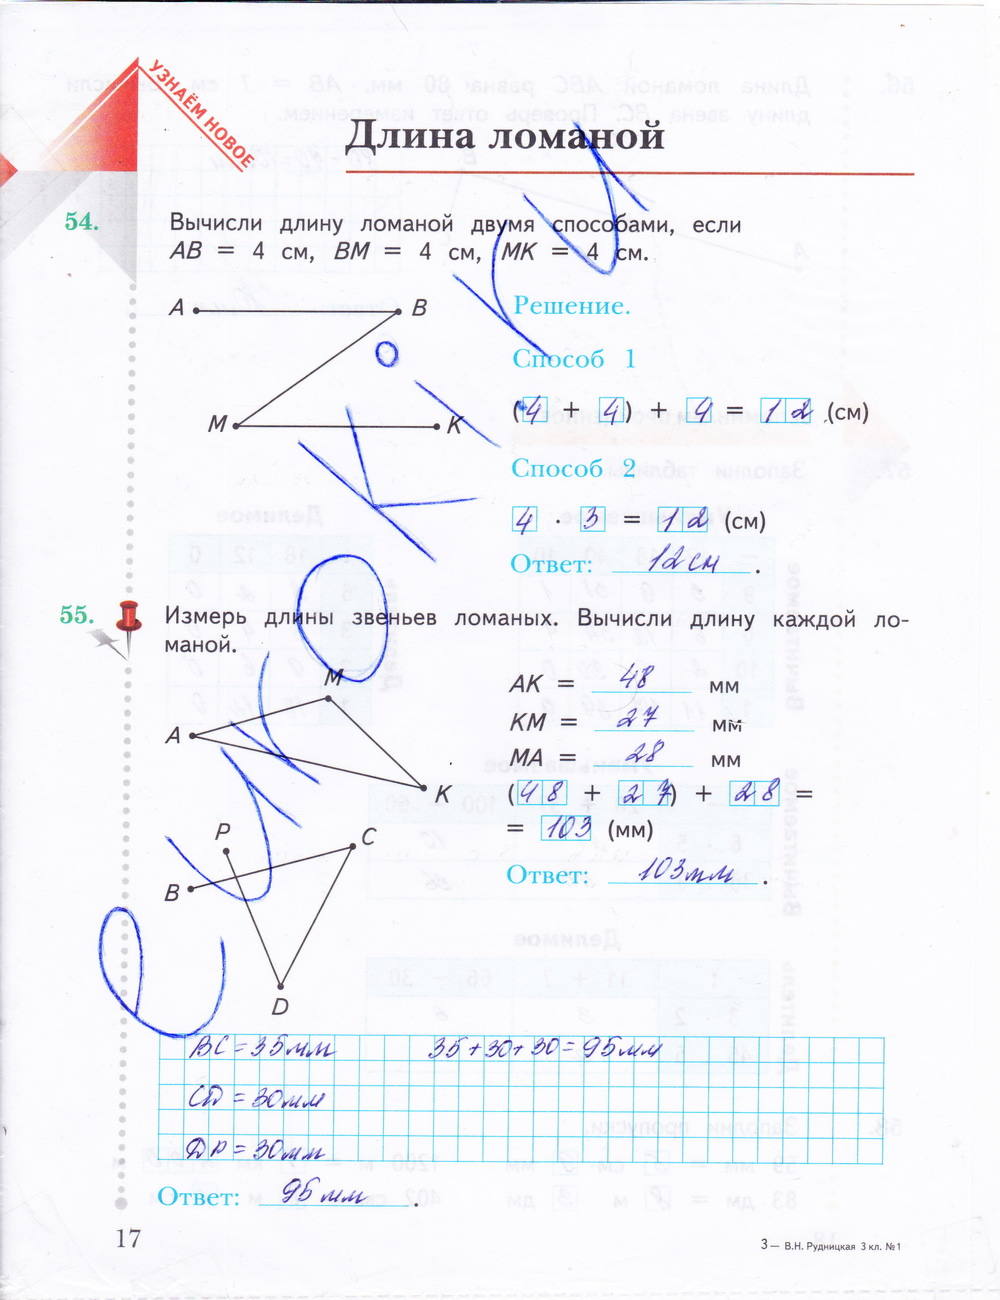 УЗНАЁМ НОВОЕ
Длина ломаной
54. Вычисли длину ломаной двумя способами, если
AB = 4 см, BM = 4 см, MK = 4 см.
A B
M K
Решение.
Способ 1
(4 + 4) + 4 = 12 (см)
Способ 2
4 · 3 = 12 (см)
Ответ: 12 см.
55. Измерь длины звеньев ломаных. Вычисли длину каждой ло-
маной.
M
A
K
AK = 48 мм
KM = 27 мм
MA = 28 мм
(48 + 27) + 28 =
= 103 (мм)
Ответ: 103 мм.
P C
B
D
BC = 35 мм 35 + 30 + 30 = 95 мм
CD = 30 мм
ДР = 30 мм
Ответ: 95 мм.
17
3 — В.Н. Рудницкая 3 кл. №1